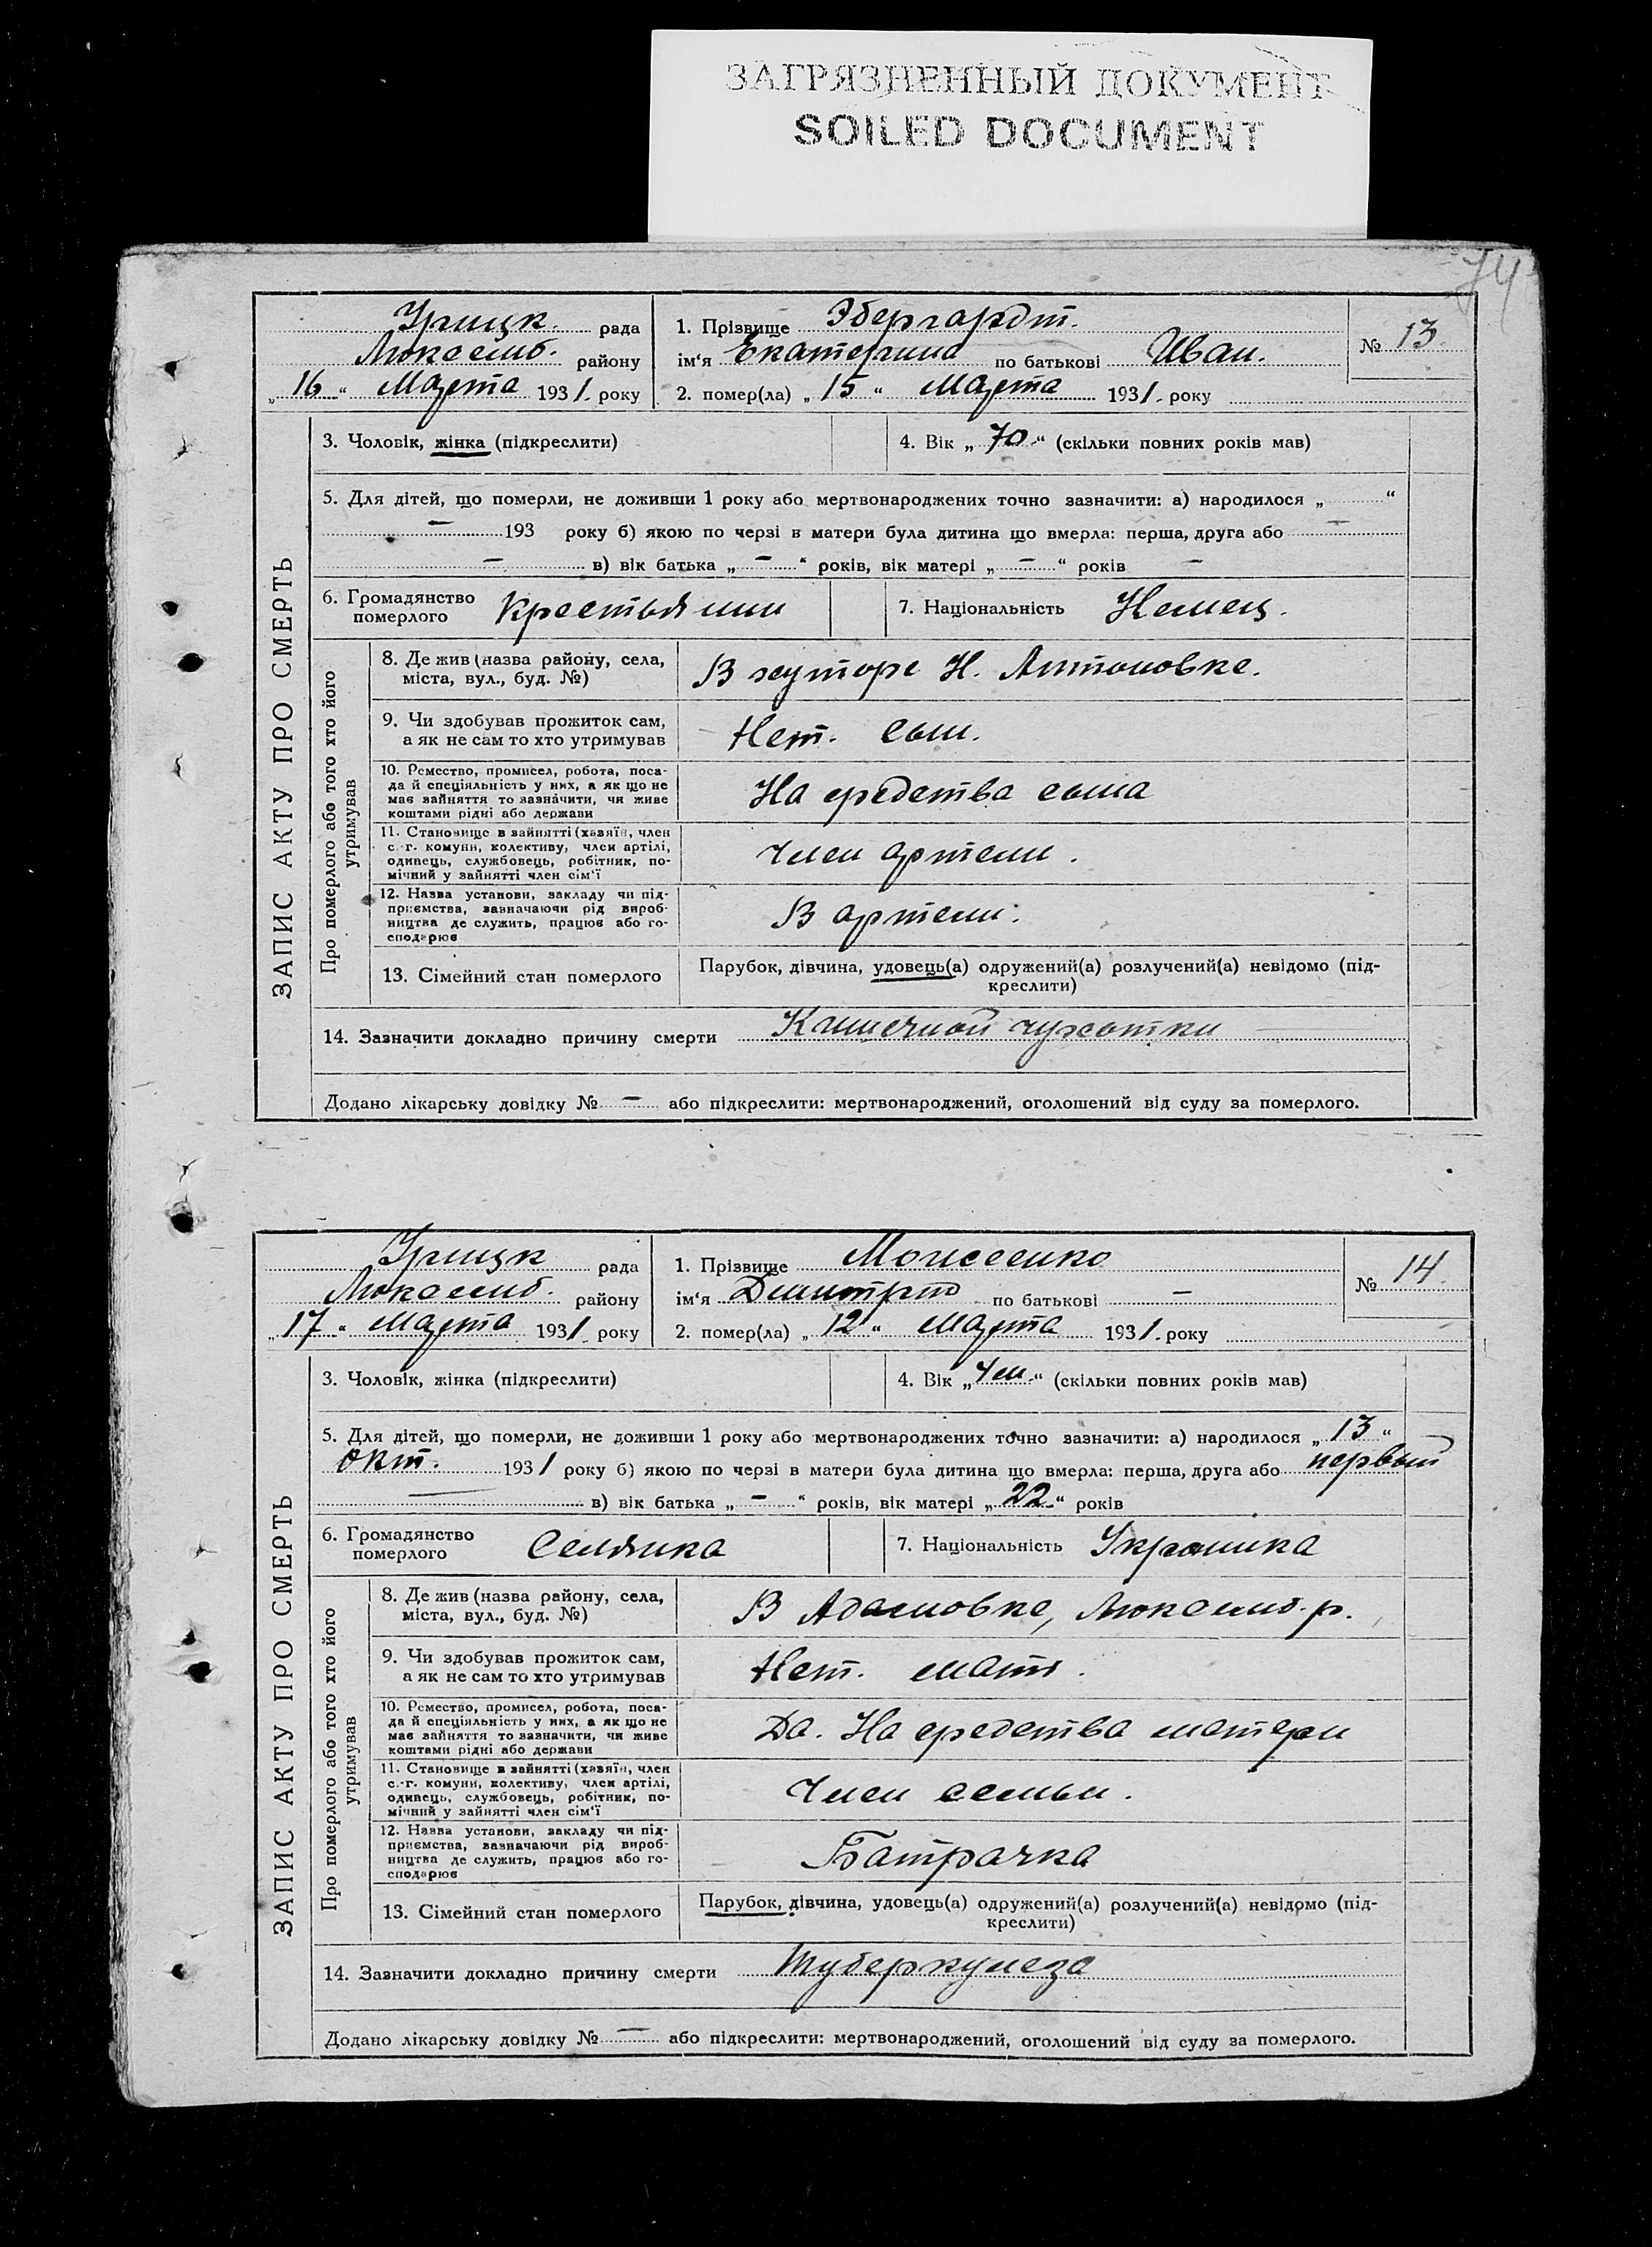 ЗАГРЯЗНЕННЫЙ ДОКУМЕНТ
SOILED DOCUMENT
74
Урицк. рада
Люксемб. району
„16“ Марта 1931. року
1. Прізвище Эбергардт.
ім‘я Екатерина по батькові Иван.
2. помер(ла) „15“ Марта 1931. року
№ 13.
ЗАПИС АКТУ ПРО СМЕРТЬ
3. Чоловік, жінка (підкреслити)
4. Вік „70“ (скільки повних років мав)
5. Для дітей, що померли, не доживши 1 року або мертвонароджених точно зазначити: а) народилося „ “
— 193 року б) якою по черзі в матери була дитина що вмерла: перша, друга або —
— в) вік батька „ — “ років, вік матері „ — “ років —
6. Громадянство померлого Крестьянин
7. Національність Немец.
Про померлого або того хто його утримував
8. Де жив (назва району, села,
міста, вул., буд. №)
В хуторе Н. Антоновке.
9. Чи здобував прожиток сам,
а як не сам то хто утримував
Нет. Сын.
10. Ремество, промисел, робота, поса-
да й спеціяльність у них, а як що не
має зайняття то зазначити, чи живе
коштами рідні або держави
На средства сына
11. Становище в зайнятті (хазяїн, член
с.-г. комуни, колективу, член артілі,
одинець, службовець, робітник, по-
мічний у зайнятті член сім‘ї
Член артели.
12. Назва установи, закладу чи під-
приємства, зазначаючи рід вироб-
ництва де служить, працює або го-
сподарює
В артели.
13. Сімейний стан померлого
Парубок, дівчина, удовець(а) одружений(а) розлучений(а) невідомо (під-
креслити)
14. Зазначити докладно причину смерти Кишечной чухотки
Додано лікарську довідку № — або підкреслити: мертвонароджений, оголошений від суду за померлого.
Урицк рада
Люксемб. району
„17“ Марта 1931. року
1. Прізвище Моисеенко
ім‘я Дмитрий по батькові —
2. помер(ла) „12“ Марта 1931. року
№ 14.
ЗАПИС АКТУ ПРО СМЕРТЬ
3. Чоловік, жінка (підкреслити)
4. Вік „4 м.“ (скільки повних років мав)
5. Для дітей, що померли, не доживши 1 року або мертвонароджених точно зазначити: а) народилося „13“
Окт. 1931 року б) якою по черзі в матери була дитина що вмерла: перша, друга або первый
— в) вік батька „ — “ років, вік матері „22“ років
6. Громадянство померлого Селянка
7. Національність Украинка
Про померлого або того хто його утримував
8. Де жив (назва району, села,
міста, вул., буд. №)
В Адамовке, Люксемб. р.
9. Чи здобував прожиток сам,
а як не сам то хто утримував
Нет. мать.
10. Ремество, промисел, робота, поса-
да й спеціяльність у них, а як що не
має зайняття то зазначити, чи живе
коштами рідні або держави
Да. На средства матери
11. Становище в зайнятті (хазяїн, член
с.-г. комуни, колективу, член артілі,
одинець, службовець, робітник, по-
мічний у зайнятті член сім‘ї
Член семьи.
12. Назва установи, закладу чи під-
приємства, зазначаючи рід вироб-
ництва де служить, працює або го-
сподарює
Батрачка
13. Сімейний стан померлого
Парубок, дівчина, удовець(а) одружений(а) розлучений(а) невідомо (під-
креслити)
14. Зазначити докладно причину смерти Туберкулеза
Додано лікарську довідку № — або підкреслити: мертвонароджений, оголошений від суду за померлого.